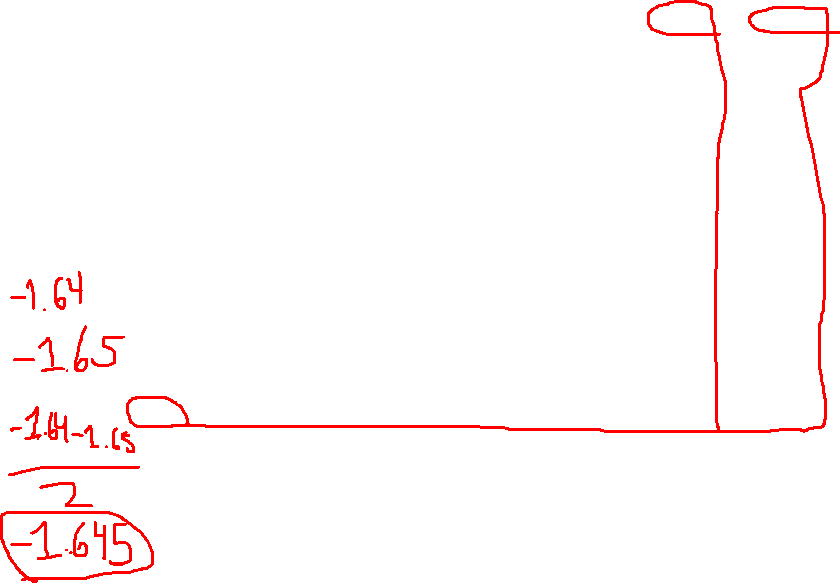 -1.64
-1.65
-1.64-1.65
2
-1.645